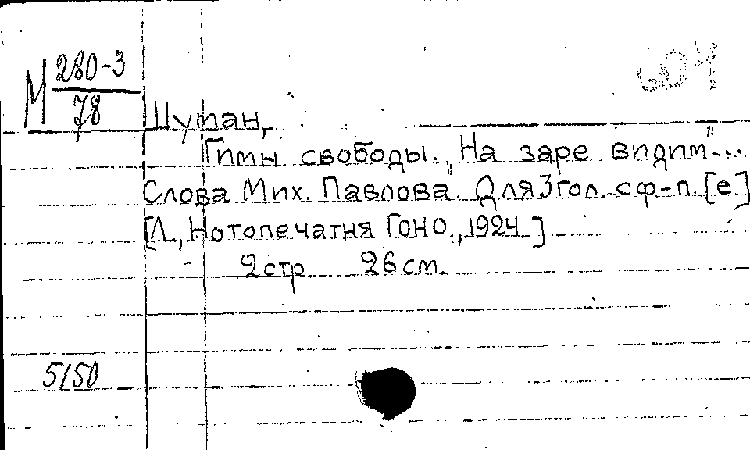 М 280-3
78
Шуман,
Гимн свободы. "На заре видим"...
Слова Мих. Павлова. Для 3 гол. с ф-п. [e.]
[Л., Нотопечатня Гоно., 1924]
2 стр 26 см.
5150